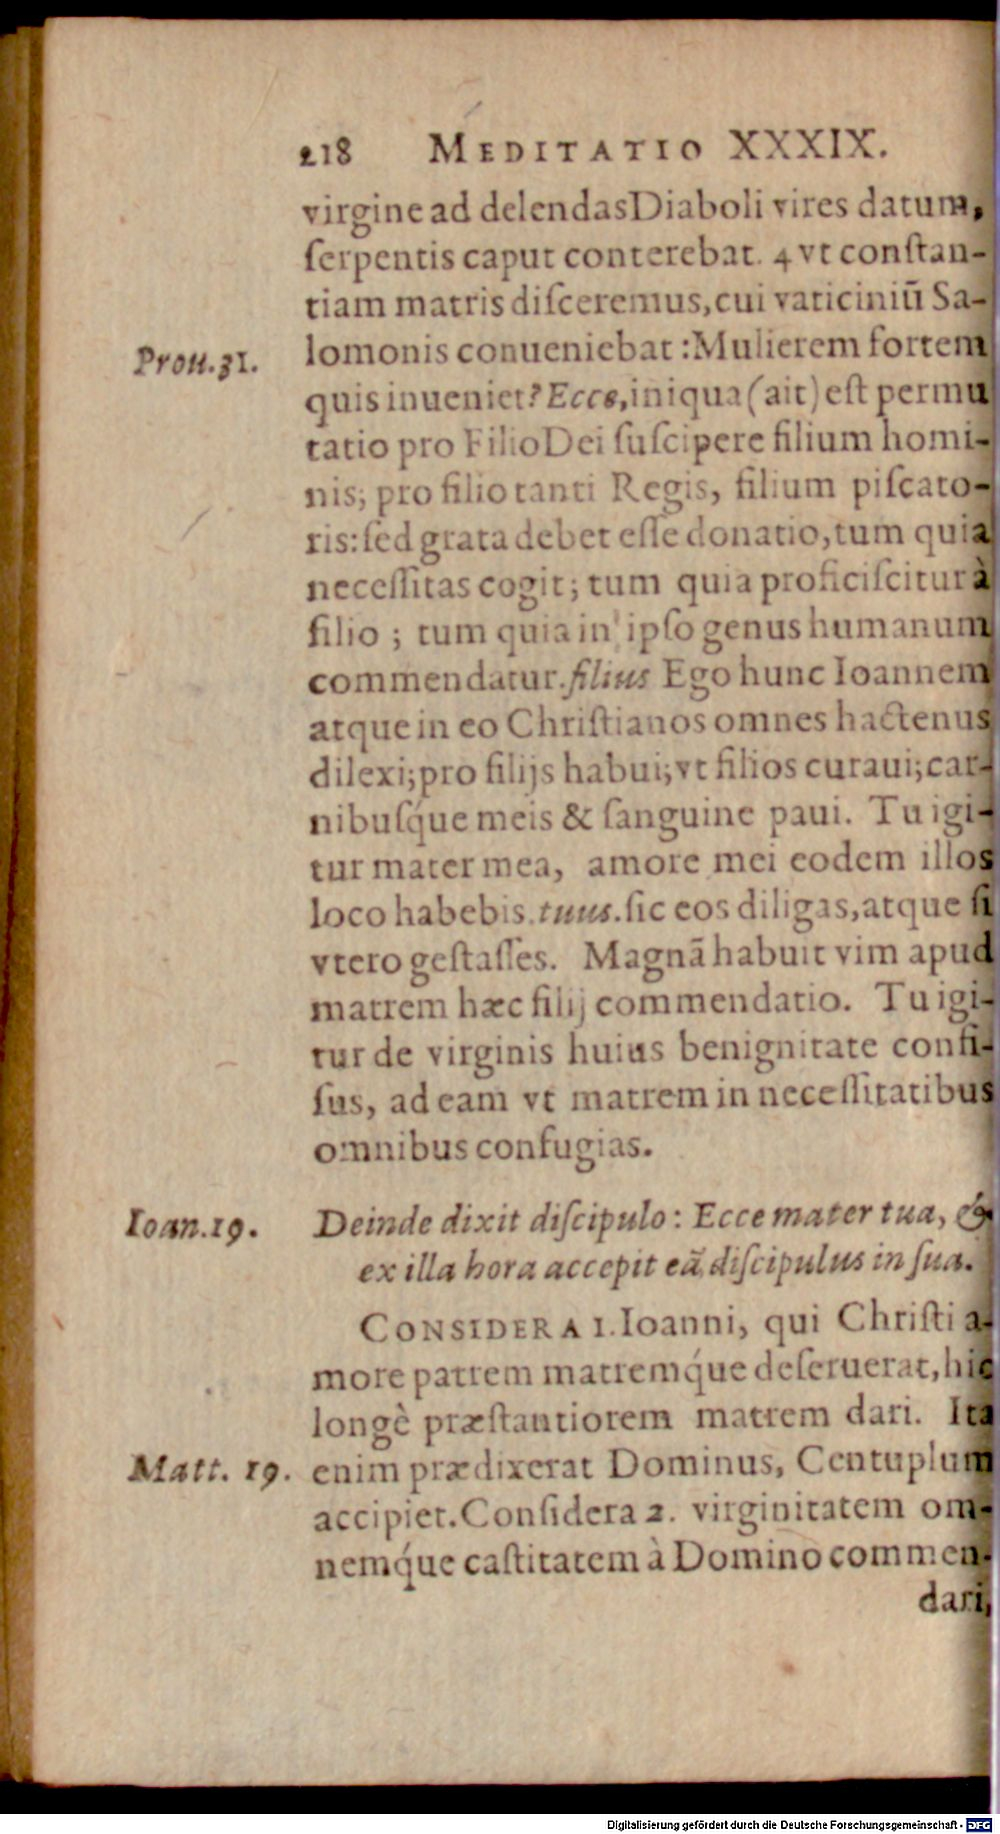 218 MEDITATIO XXXIX.
virgine ad delendas Diaboli vires datum,
ſerpentis caput conterebat. 4 vt conſtan-
tiam matris diſceremus, cui vaticiniū Sa-
Prou. 31.
lomonis conueniebat: Mulierem fortem
quis inueniet? Ecce, iniqua (ait) eſt permu
tatio pro Filio Dei ſuſcipere filium homi-
nis; pro filio tanti Regis, filium piſcato-
ris: ſed grata debet eſſe donatio, tum quia
neceſſitas cogit; tum quia proficiſcitur à
filio; tum quia in ipſo genus humanum
commendatur. filius Ego hunc Ioannem
atque in eo Chriſtianos omnes hactenus
dilexi; pro filijs habui; vt filios curaui; car-
nibuſq́ue meis & ſanguine paui. Tu igi-
tur mater mea, amore mei eodem illos
loco habebis. tuus. ſic eos diligas, atque ſi
vtero geſtaſſes. Magnā habuit vim apud
matrem hæc filij commendatio. Tu igi-
tur de virginis huius benignitate confi-
ſus, ad eam vt matrem in neceſſitatibus
omnibus confugias.
Ioan. 19.
Deinde dixit diſcipulo: Ecce mater tua, &
ex illa hora accepit eā diſcipulus in ſua.
CONSIDERA 1. Ioanni, qui Chriſti a-
more patrem matremq́ue deſeruerat, hic
longè præſtantiorem matrem dari. Ita
Matt. 19.
enim prædixerat Dominus, Centuplum
accipiet. Conſidera 2. virginitatem om-
nemq́ue caſtitatem à Domino commen-
dari,
Digitalisierung gefördert durch die Deutsche Forschungsgemeinschaft - DFG